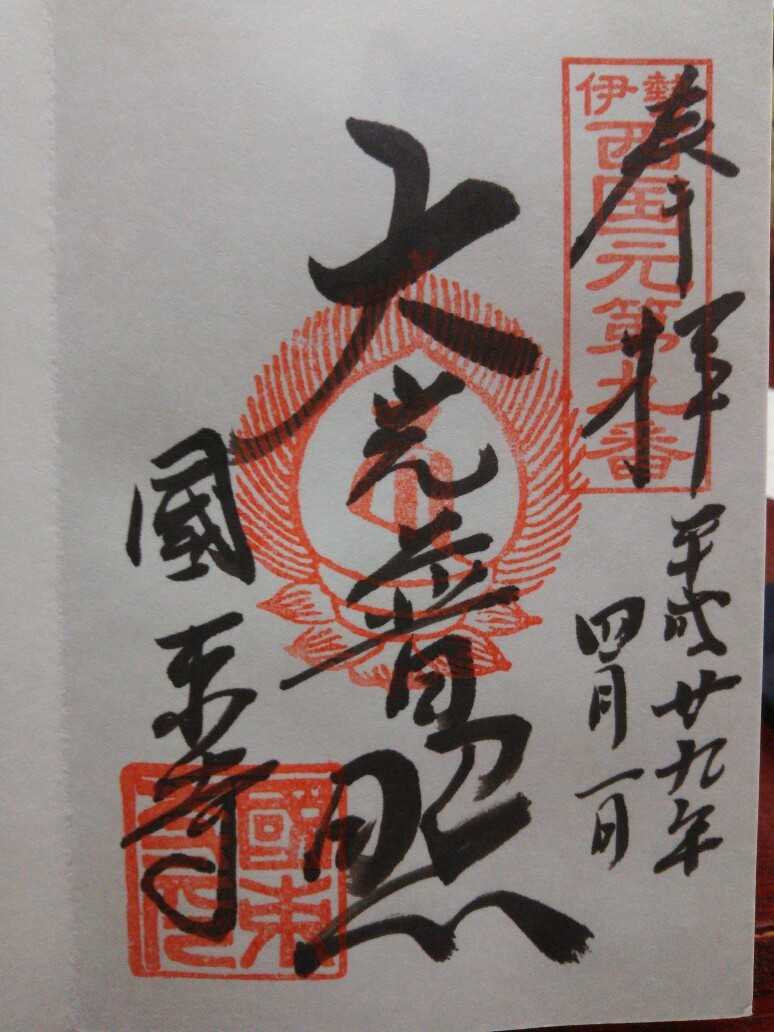 奉拝
伊勢
西国元第九番
平成廿九年
四月一日
大光普照
國束寺
國束
寺印